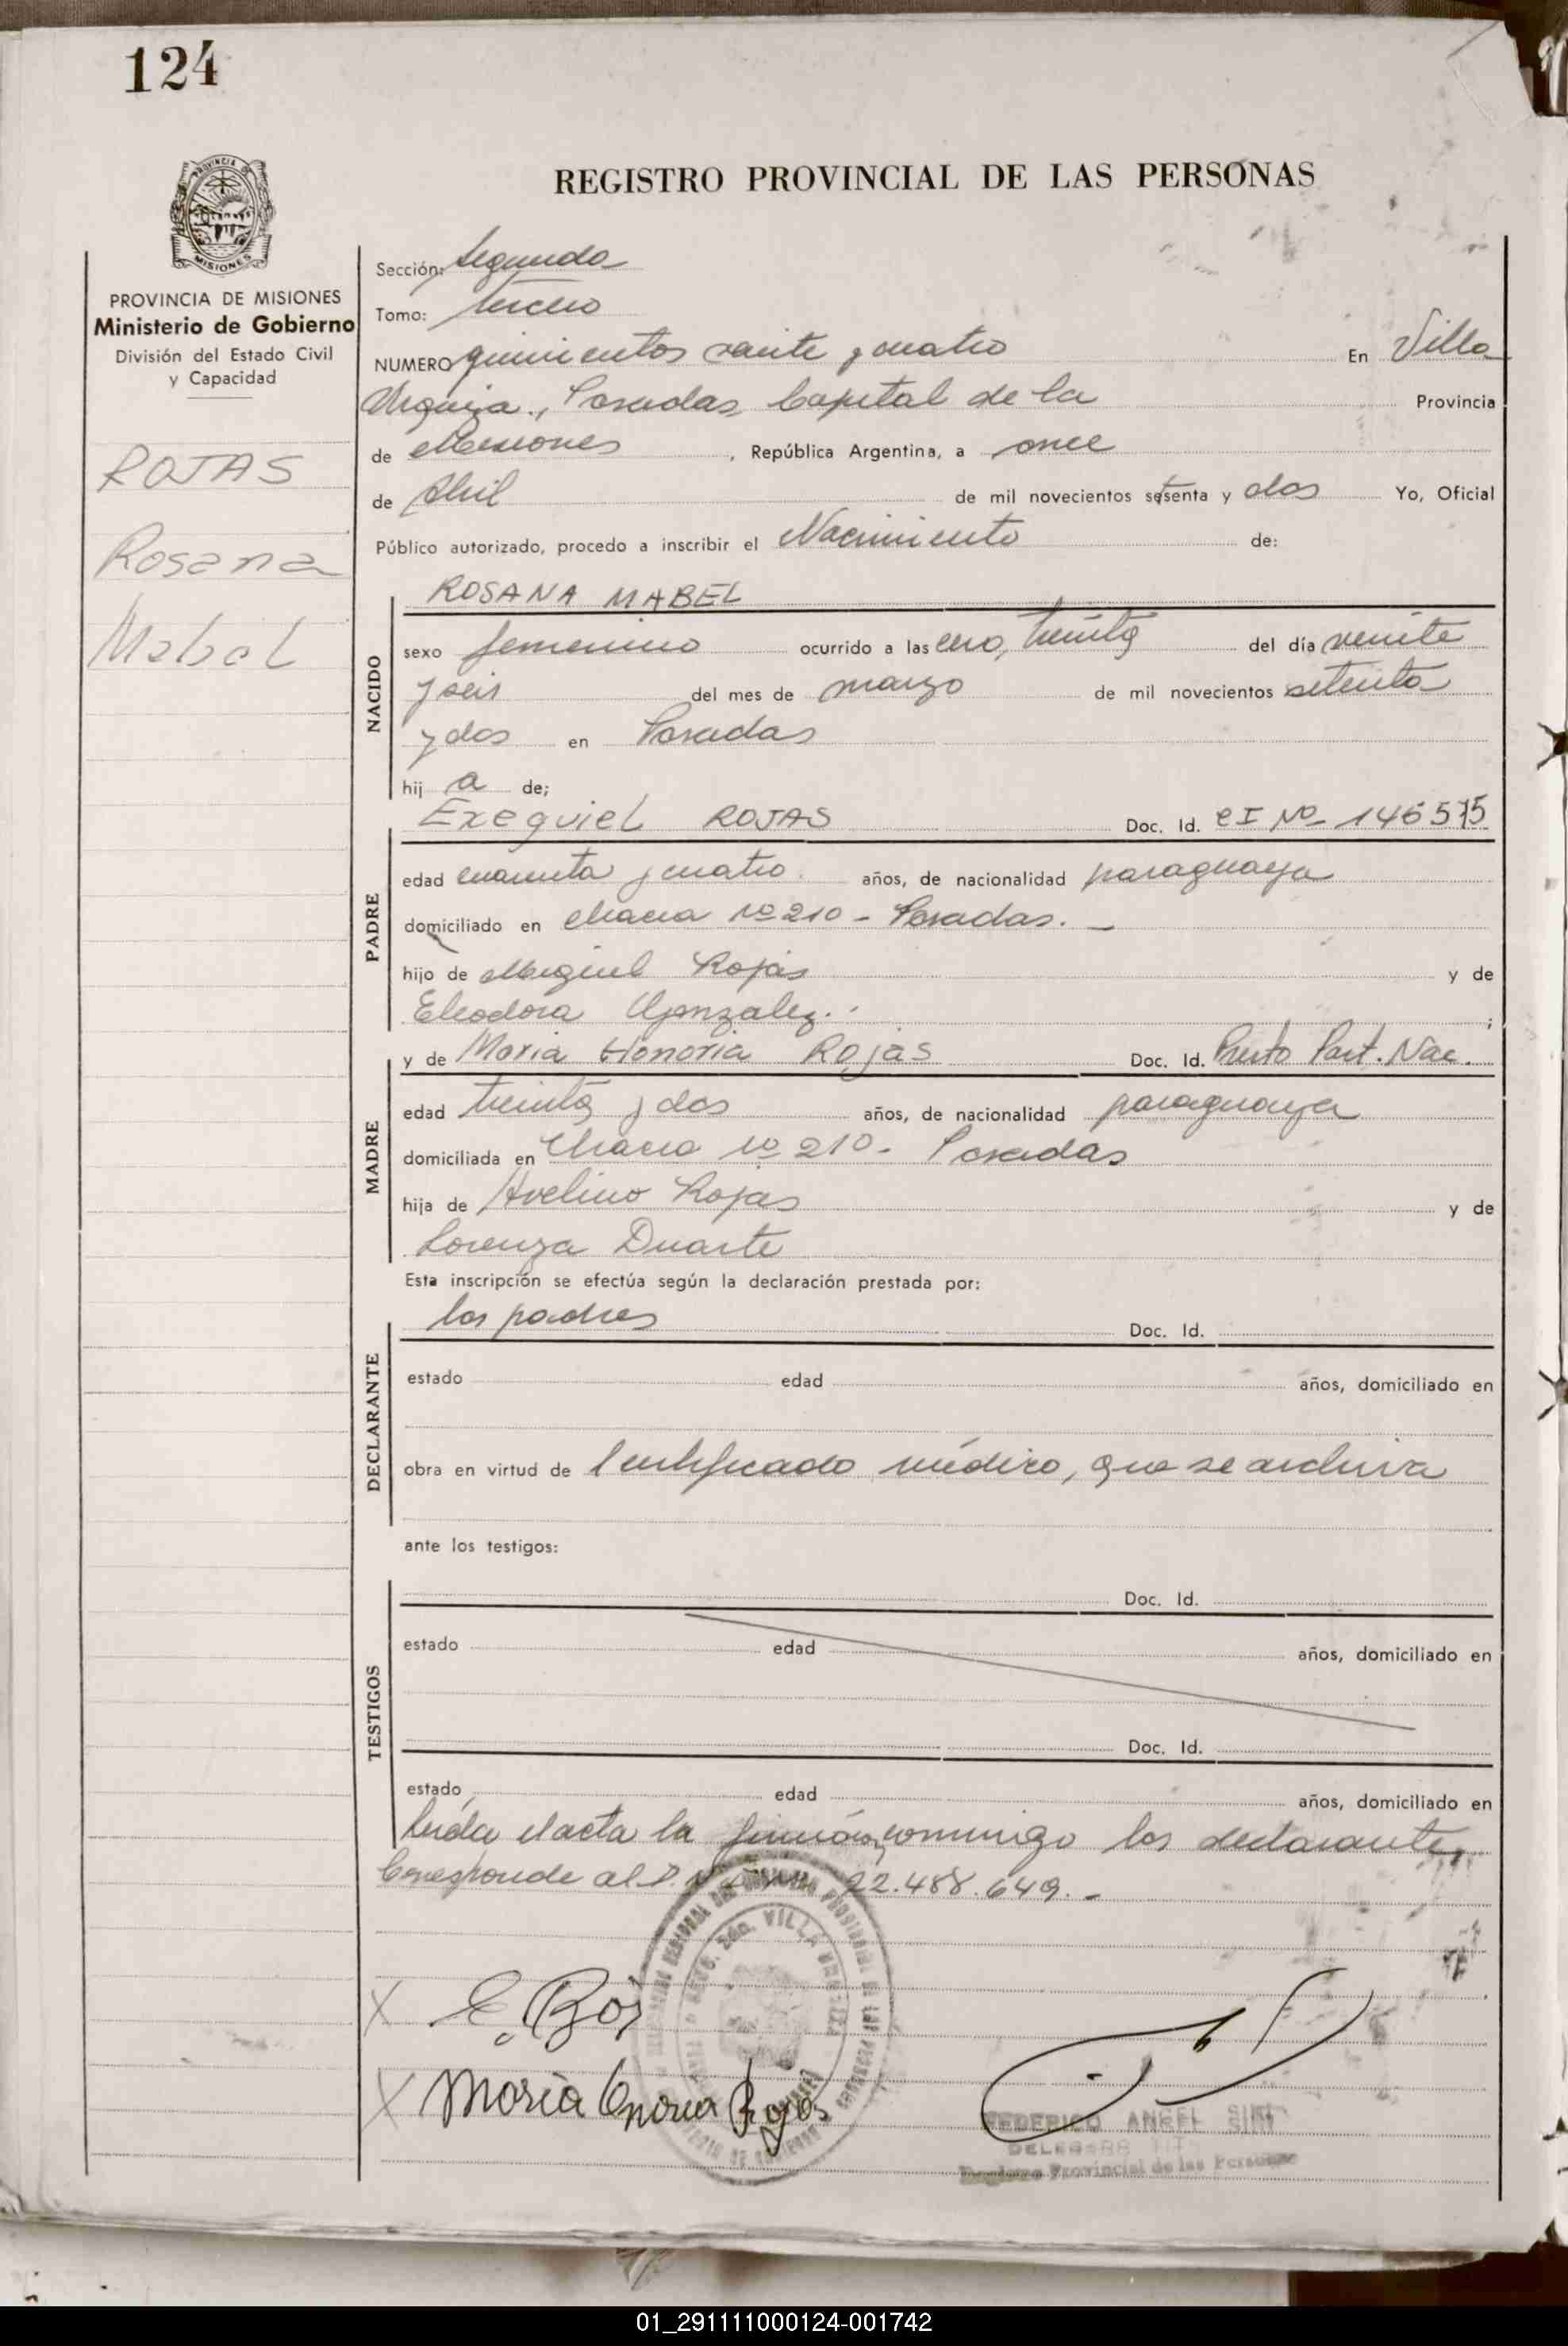 124
PROVINCIA DE
MISIONES
REGISTRO PROVINCIAL DE LAS PERSONAS
PROVINCIA DE MISIONES
Ministerio de Gobierno
División del Estado Civil
y Capacidad
ROJAS
Rosana
Mabel
Sección: Segunda
Tomo: tercero
NUMERO quinientos veinte y cuatro En Villa
Urquiza., Posadas, Capital de la Provincia
de Misiones, República Argentina, a once
de Abril de mil novecientos setenta y dos Yo, Oficial
Público autorizado, procedo a inscribir el Nacimiento de:
ROSANA MABEL
NACIDO
sexo femenino ocurrido a las cero, treinta del día veinte
y seis del mes de marzo de mil novecientos setenta
y dos en Posadas
hij a de;
Exequiel ROJAS Doc. Id. CI Nº 146575
PADRE
edad cuarenta y cuatro. años, de nacionalidad paraguaya
domiciliado en Chacra Nº 210 - Posadas. -
hijo de Miguel Rojas y de
Eleodora Gonzalez. ;
y de Maria Honoria Rojas Doc. Id. Part. Nac.
MADRE
edad treinta y dos años, de nacionalidad paraguaya
domiciliada en Chacra Nº 210 - Posadas
hija de Avelino Rojas y de
Lorenza Duarte
Esta inscripción se efectúa según la declaración prestada por:
los padres Doc. Id.
DECLARANTE
estado edad años, domiciliado en
obra en virtud de Certificado médico, que se archiva
ante los testigos:
Doc. Id.
TESTIGOS
estado edad años, domiciliado en
Doc. Id.
estado edad años, domiciliado en
Leída el acta la firman conmigo los declarantes
Corresponde al D. N. 22.488.649. -
X E. Roj
X Maria Onoria Rojas
VILLA URQUIZA
FEDERICO ANGEL
Registro Provincial de las Personas
01_291111000124-001742